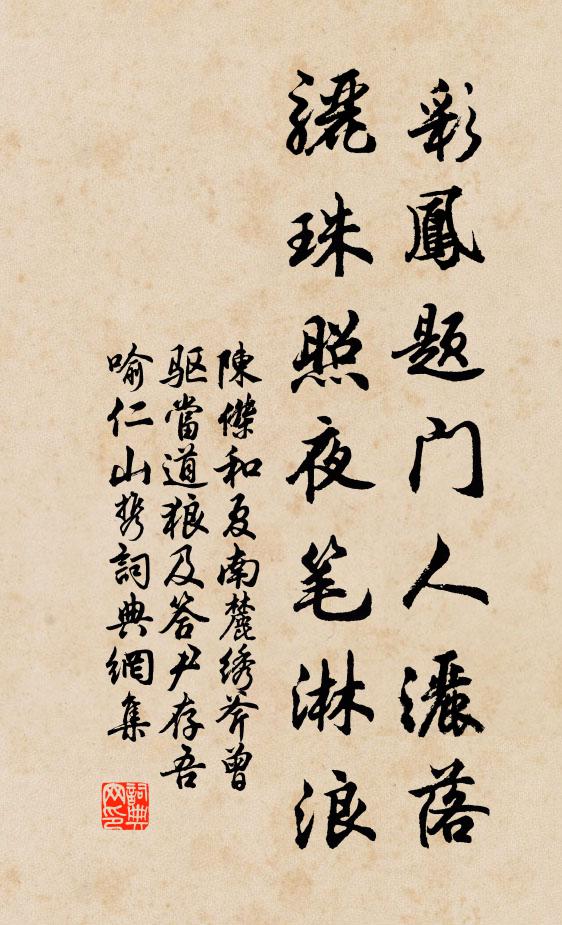 彩鳳題門人灑落
驪珠照夜笔淋浪
陳傑和夏南麓绣斧曾
驱當道狼及答尹存吾
喻仁山韵詞典網集
詞典网印